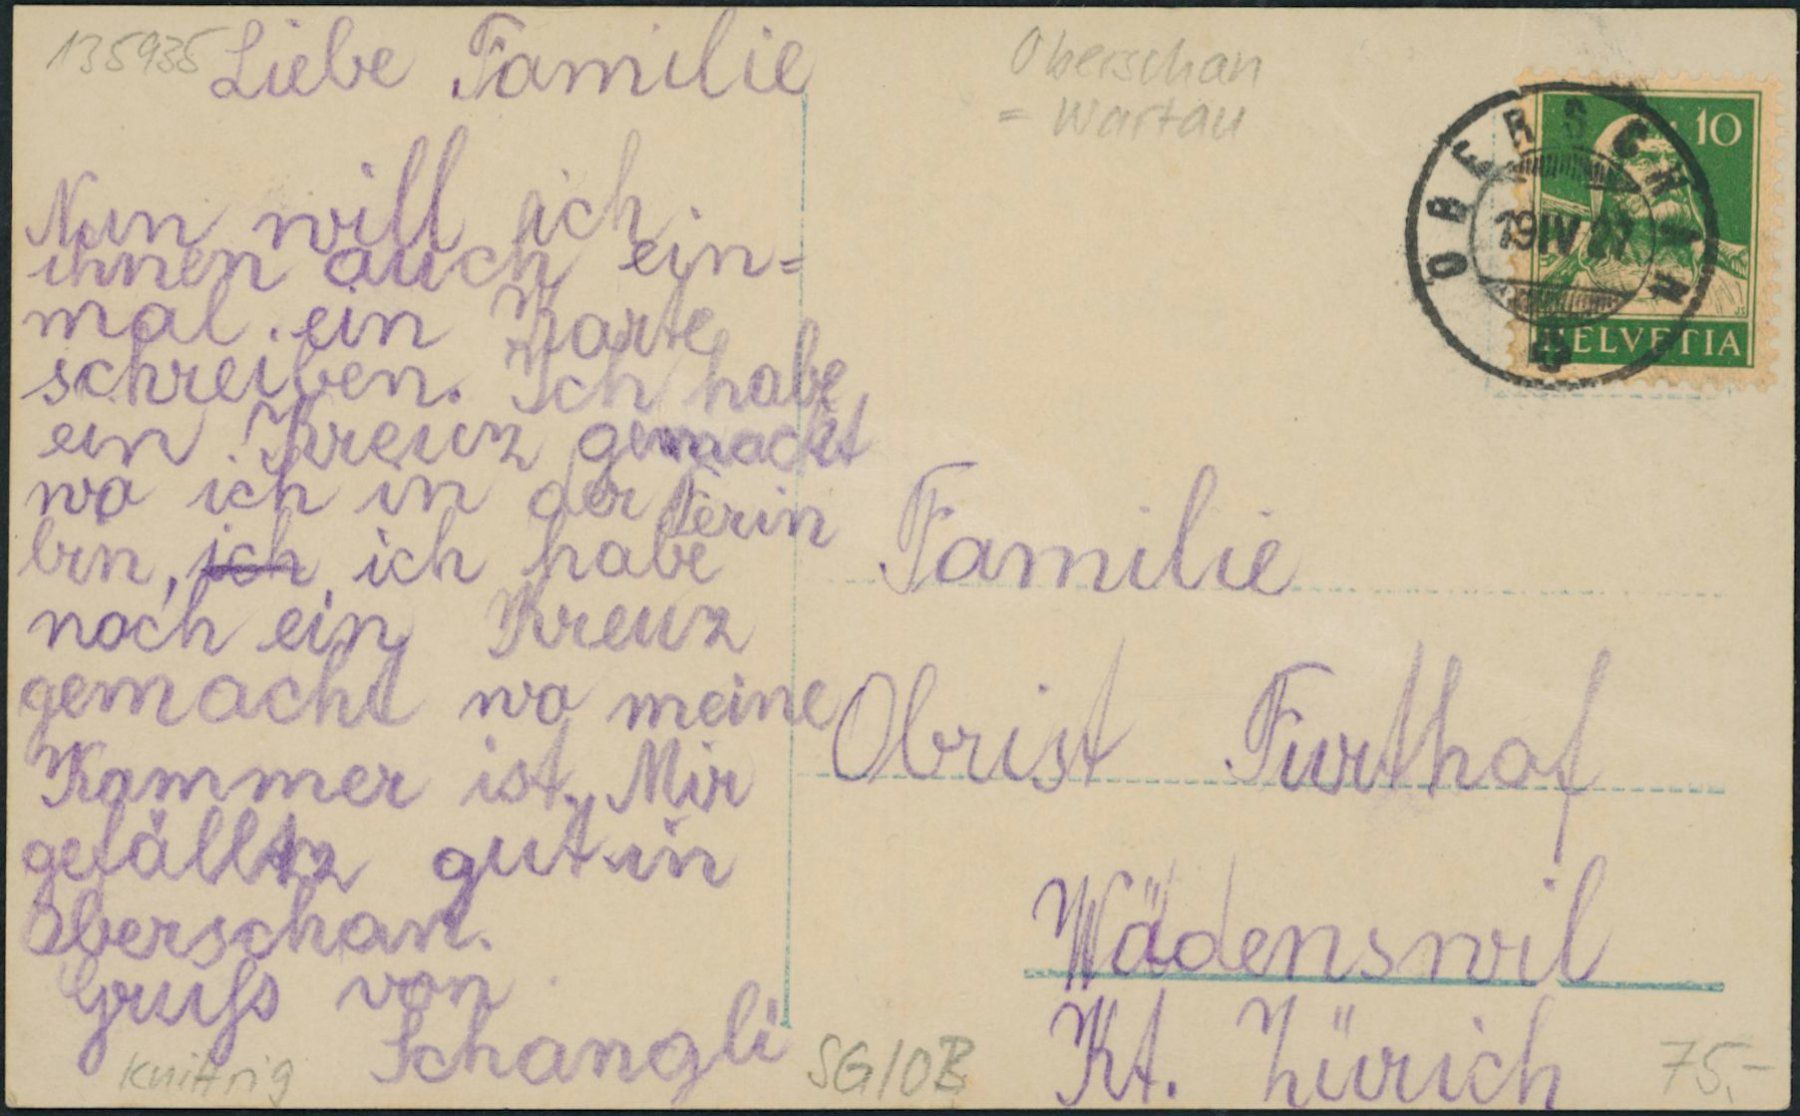 135935
Liebe Familie
Nun will ich
ihnen auch ein=
mal ein Karte
schreiben. Ich habe
ein Kreuz gemacht
wo ich in der Ferin
bin, ich ich habe
noch ein Kreuz
gemacht wo meine
Kammer ist. Mir
gefällt gut in
Oberschan.
Gruss von
Schangli
knittrig
Oberschan
= Wartau
OBERSCHAN
19 IV 27
10
HELVETIA
Familie
Obrist Furthof
Wädenswil
Kt. Zürich
SG10B
75.-